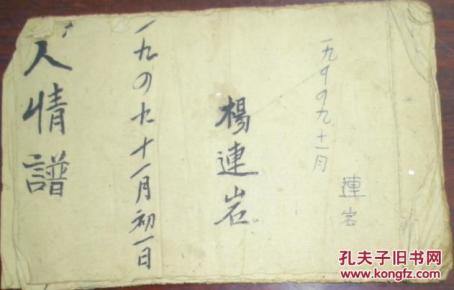 人情譜
一九四九十一月初一日
楊連岩
一九四九十一月
連岩
孔夫子旧书网
www.kongfz.com